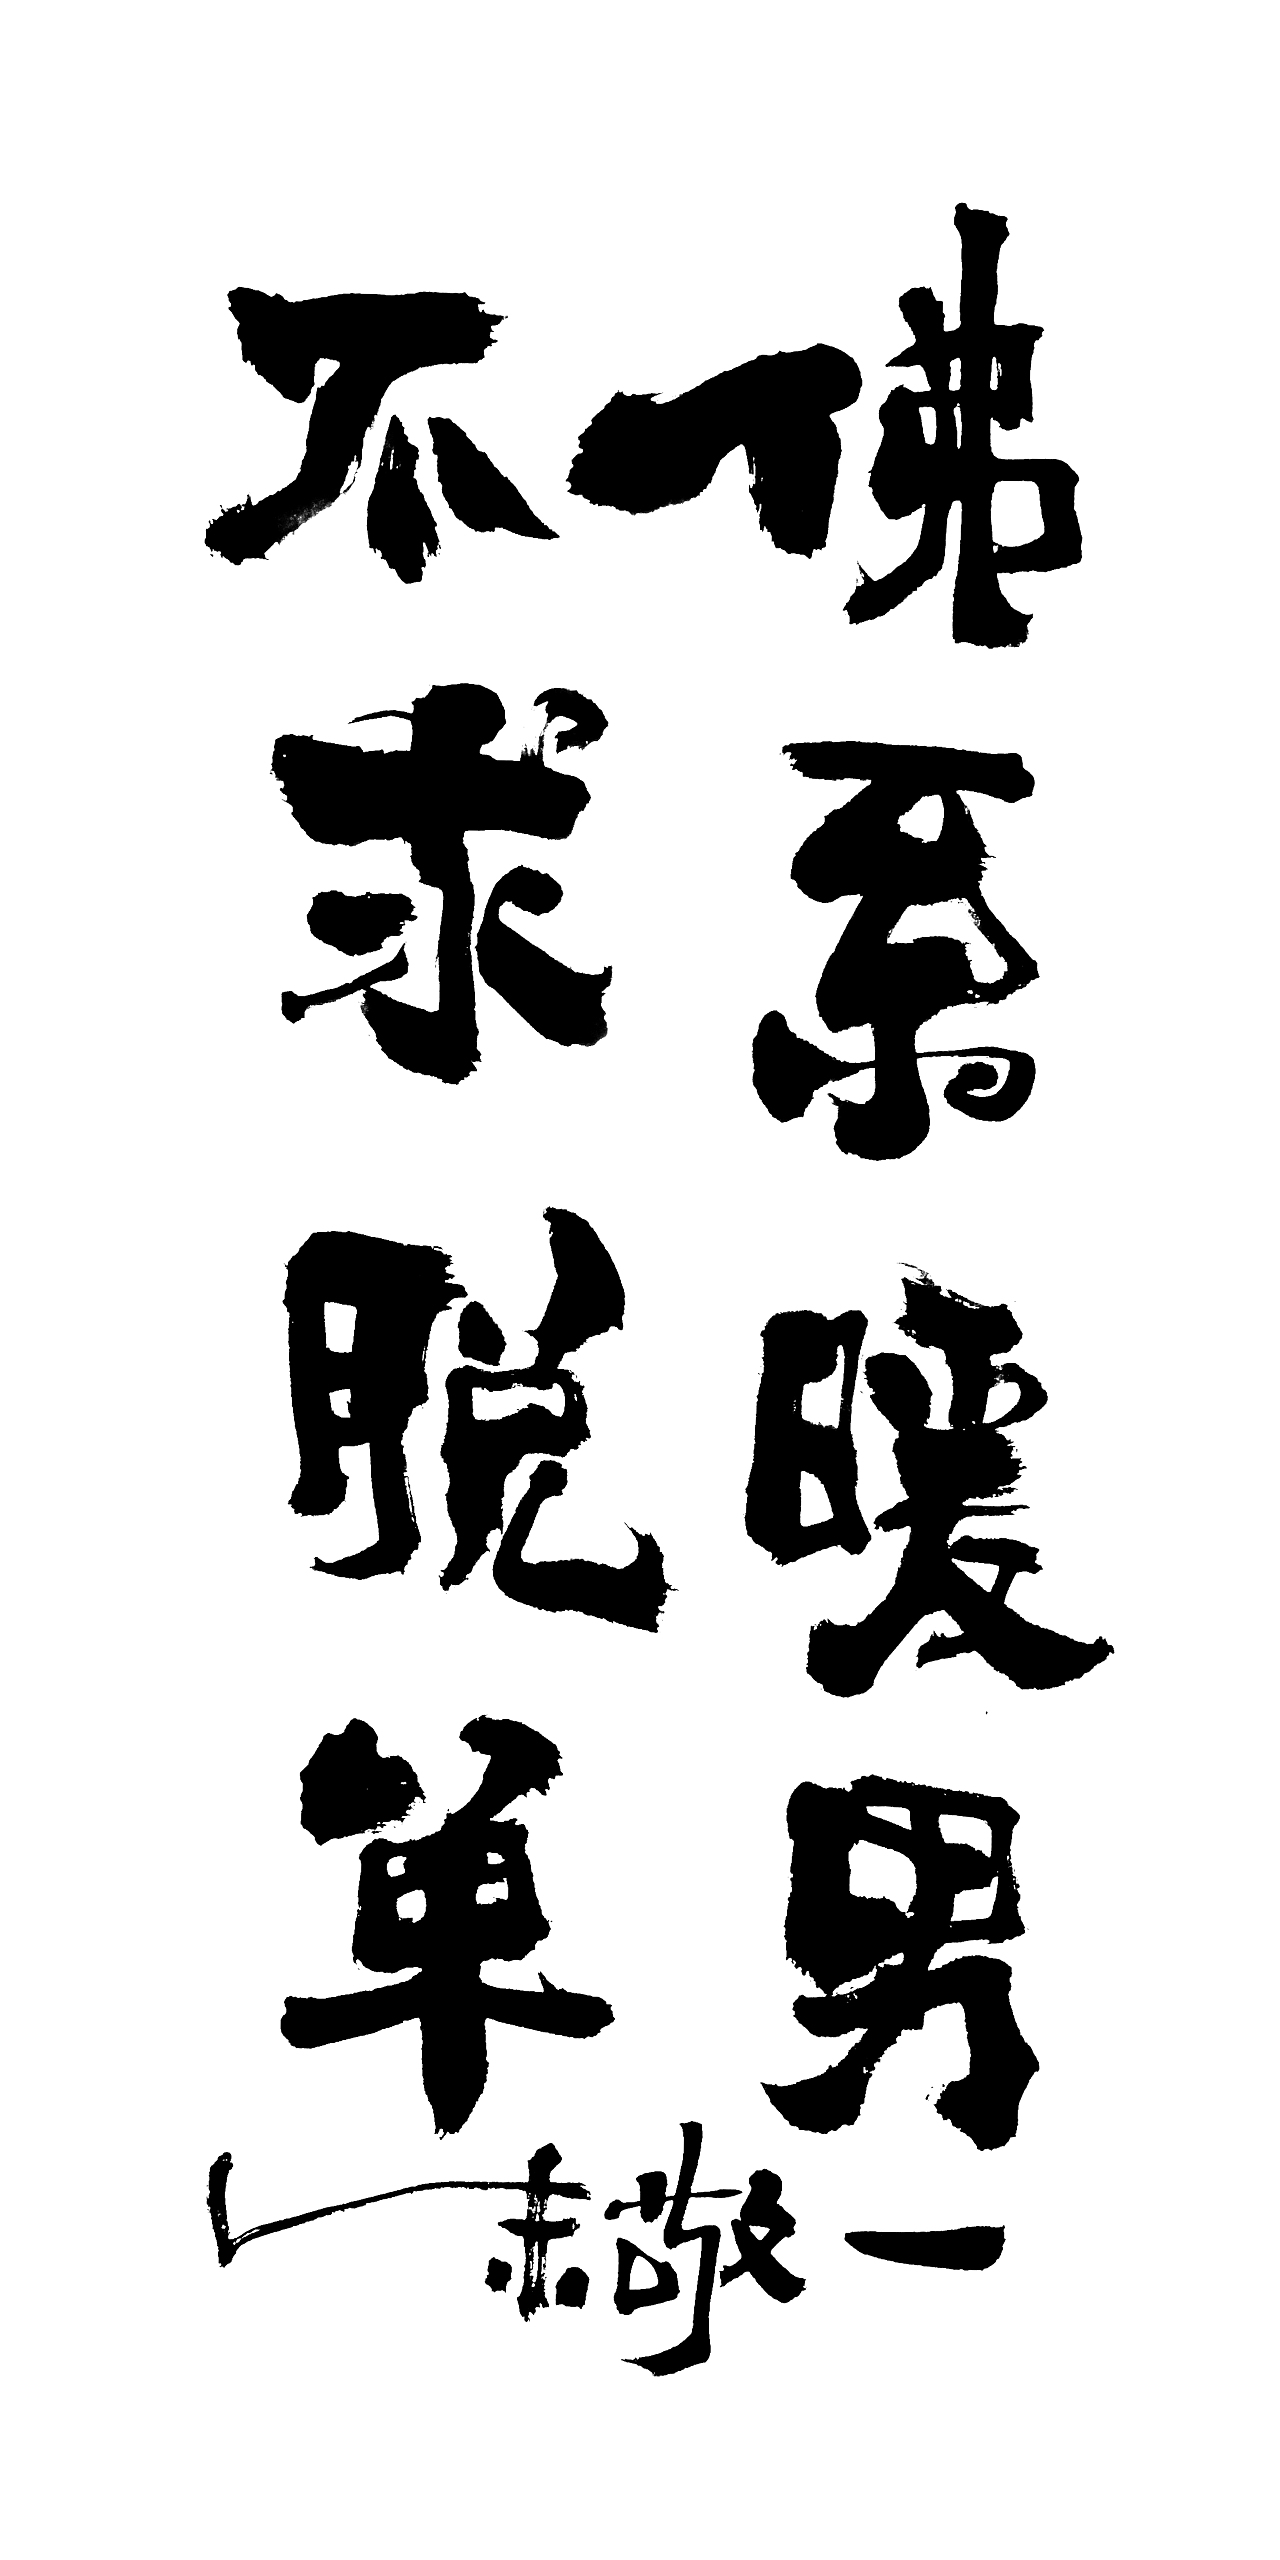 佛系暖男
不求脱单
一敬